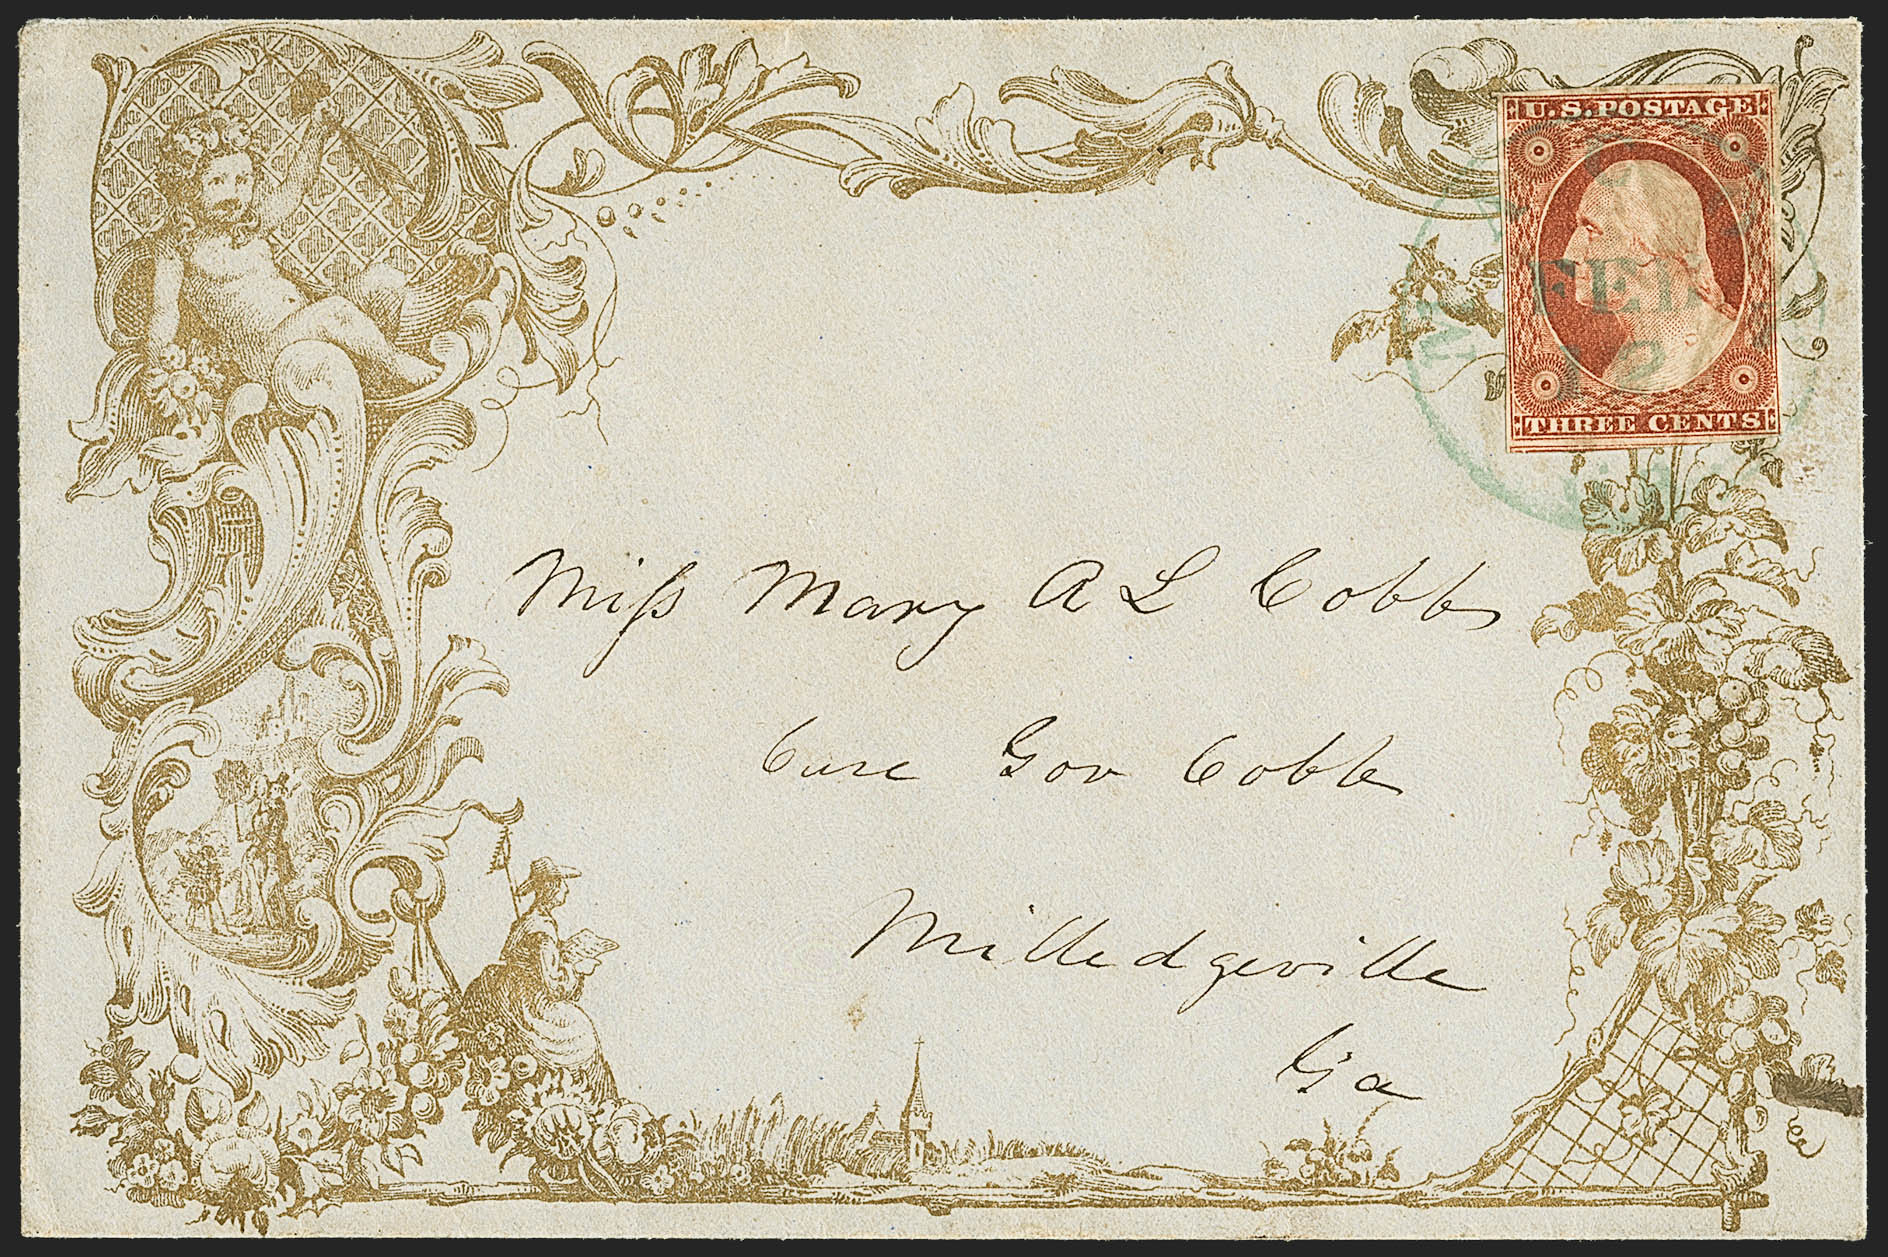 U.S. POSTAGE
FEB
12
THREE CENTS
Miſs Mary A L Cobb
Care Gov Cobb
Milledgeville
Ga